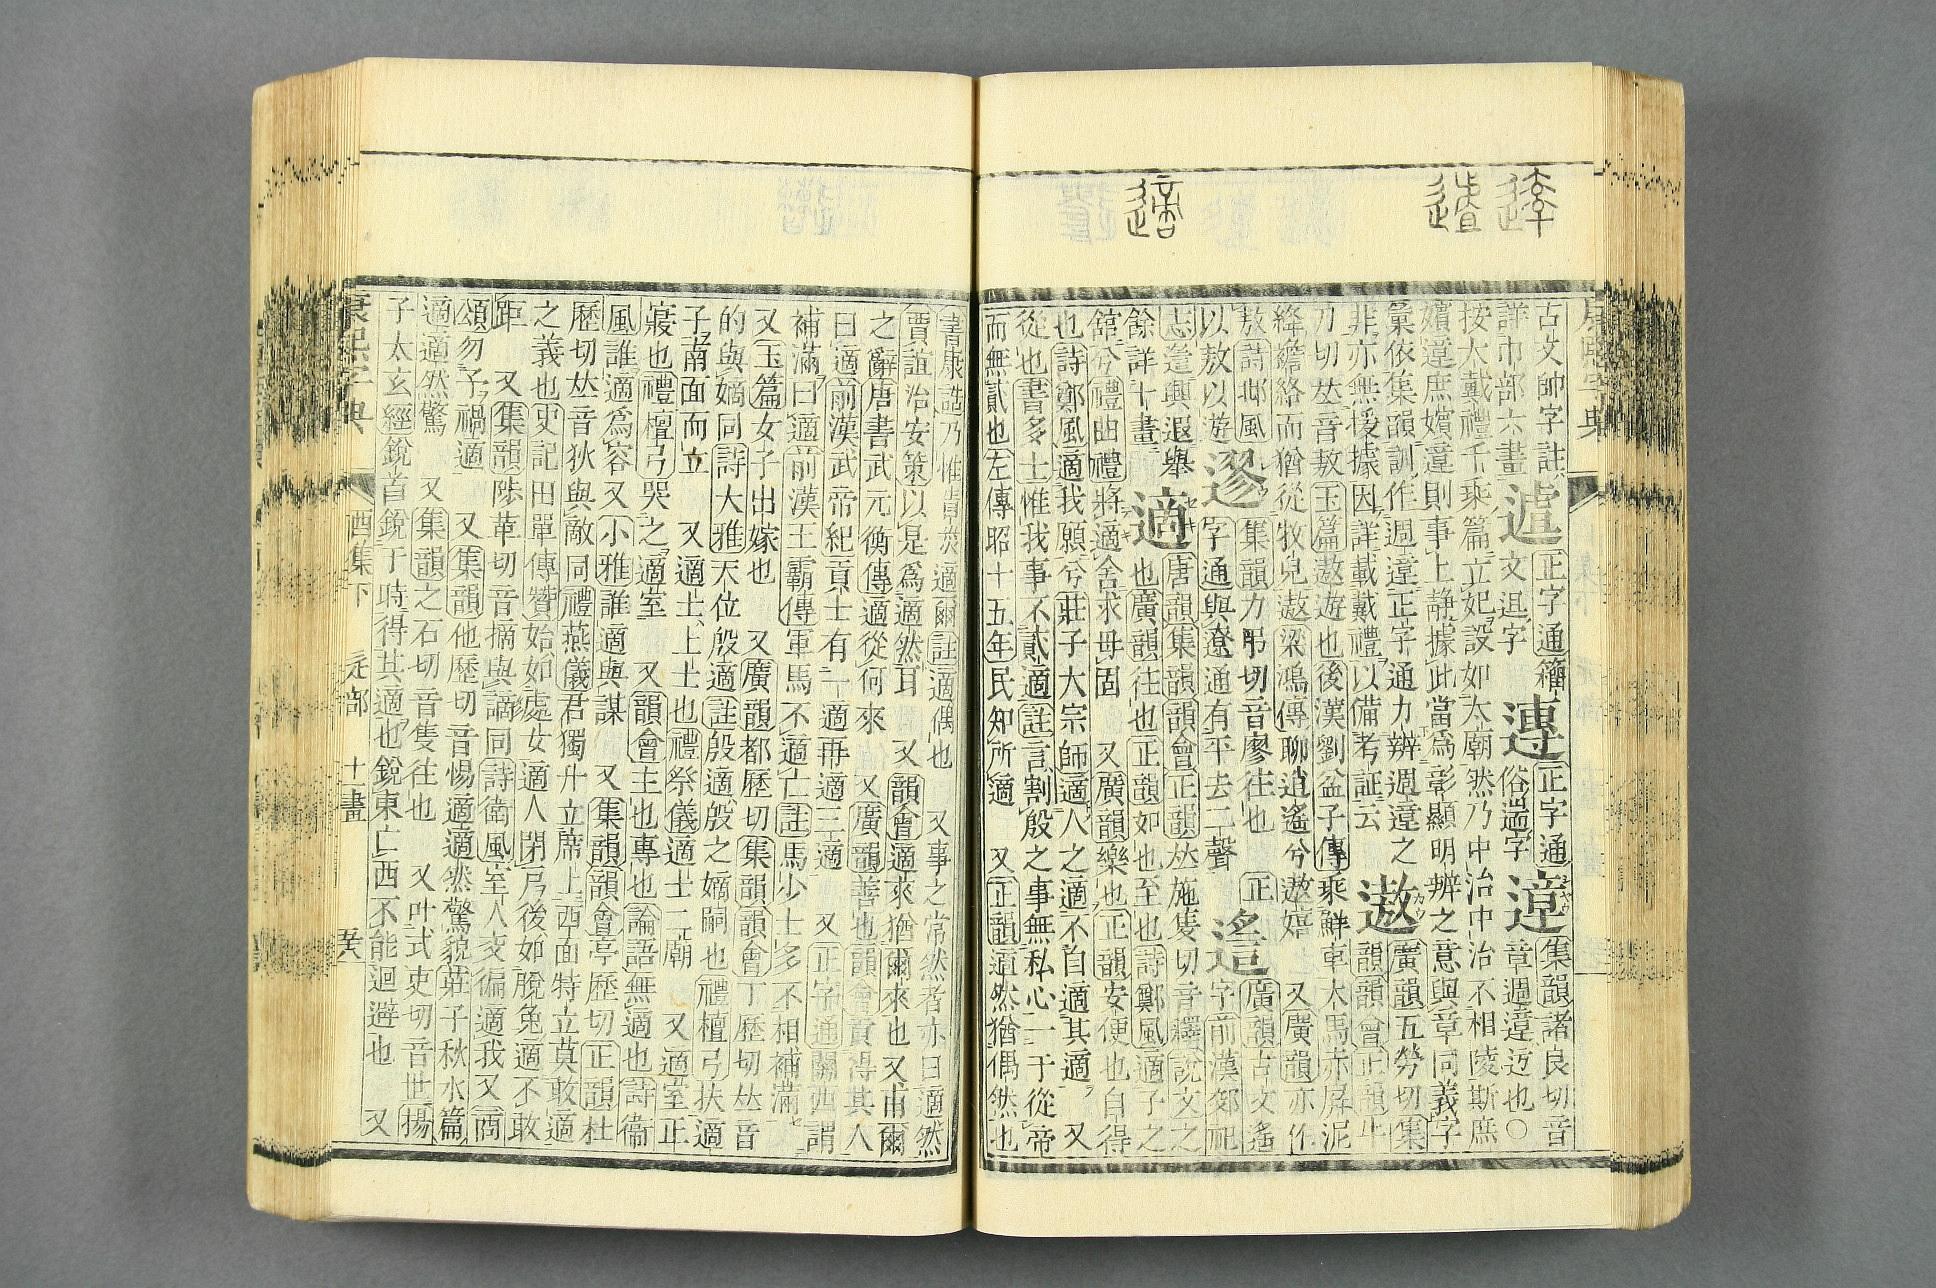 古文帥字註
詳巾部六畫
文迅字
正字通籀
俗遄字
正字通
遧
集韻諸良切音
章週遧迒也○
按大戴禮千乘篇立妃設如大廟然乃中治中治不相陵斯庶
嬪遧庶嬪遧則事上靜據此當為彰顯明辨之意與章同義字
彙依集韻訓作週遧正字通力辨週遧之
非亦無援據因詳載戴禮以備考証云
遨
廣韻五勞切集
韻韻會正韻牛
刀切𠀤音敖玉篇遨遊也後漢劉盆子傳乘鮮車大馬赤屏泥
絳襜絡而猶從牧兒遨梁鴻傳聊逍遙兮遨嬉
又廣韻亦作
敖詩邶風
以敖以遊
遼
集韻力弔切音廖往也
正
字通與遼通有平去二聲
遙
廣韻古文遙
字前漢郊祀
志遙興遐舉
適
唐韻集韻韻會正韻𠀤施隻切音釋說文之
餘詳十畫
也廣韻往也正韻如也至也詩鄭風適子之
館兮禮曲禮將適舍求毋固
又廣韻樂也正韻安便也自得
也詩鄭風適我願兮莊子大宗師適人之適不自適其適
又
從也書多士惟我事不貳適註言割殷之事無私心一于從帝
而無貳也左傳昭十五年民知所適
又正韻適然猶偶然也
書康誥乃惟眚烖適爾註適偶也
又事之常然者亦曰適然
賈誼治安策以是為適然耳
又韻會適來猶爾來也又甫爾
之辭唐書武元衡傳適從何來
又廣韻善也韻會貢得其人
曰適前漢武帝紀貢士有一適再適三適
又正字通關西謂
補滿曰適前漢王霸傳軍馬不適亡註馬少士多不相補滿
又玉篇女子出嫁也
又廣韻都歷切集韻韻會丁歷切𠀤音
的與嫡同詩大雅天位殷適註殷適殷之嫡嗣也禮檀弓扶適
子南面而立
又適士上士也禮祭儀適士二廟
又適室正
寢也禮檀弓哭之適室
又韻會主也專也論語無適也詩衞
風誰適為容又小雅誰適與謀
又集韻韻會亭歷切正韻杜
歷切𠀤音狄與敵同禮燕儀君獨升立席上西面特立莫敢適
之義也史記田單傳贊始如處女適人閉戸後如脫兔適不敢
距
又集韻陟革切音摘與謫同詩衛風室人交徧適我又商
頌勿予禍適
又集韻他歷切音惕適適然驚貌莊子秋水篇
適適然驚
又集韻之石切音隻往也
又叶式吏切音世揚
子太玄經銳首銳于時得其適也銳東亡西不能迴避也
又
康熙字典
酉集下
辵部
十一畫
康熙字典